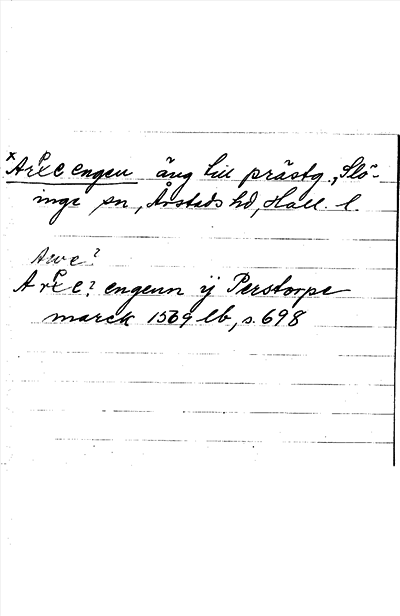 *Arpe engen äng till prästg., Slö-
inge sn, Årstads hd, Hall. l.
Arve?
Arpe? engenn ij Perstorpe
marck 1569 lb, s. 698